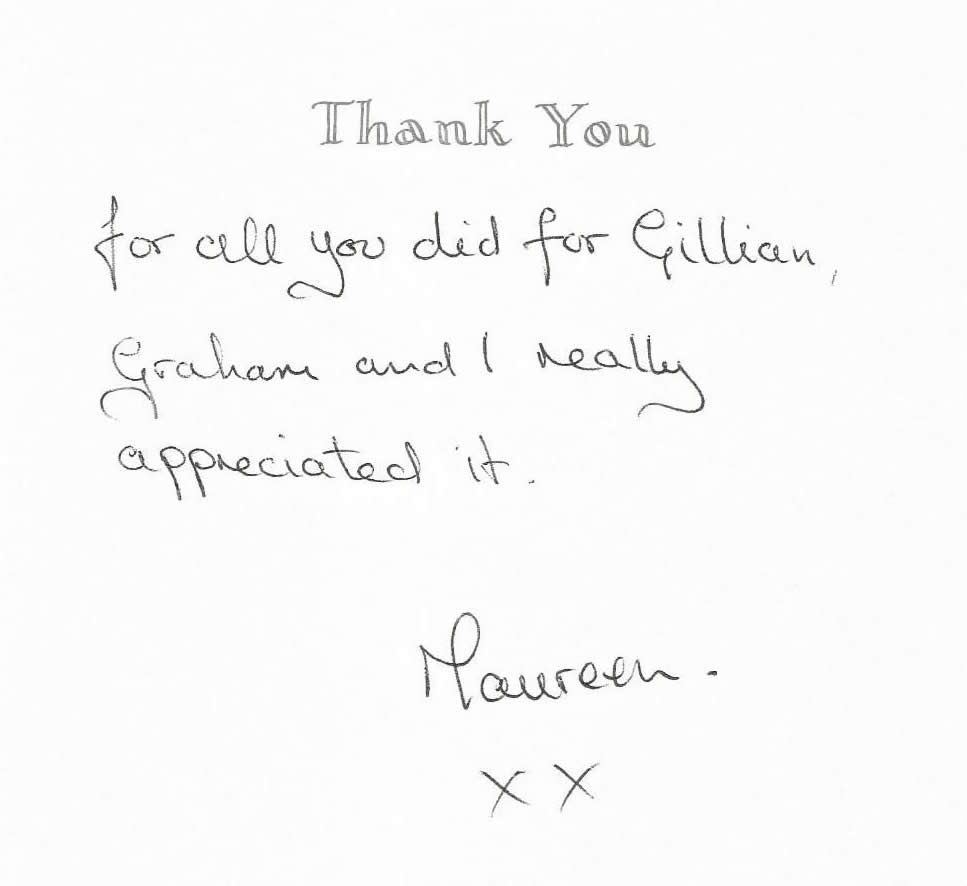 Thank You
for all you did for Gillian,
Graham and I really
appreciated it.
Maureen.
x x